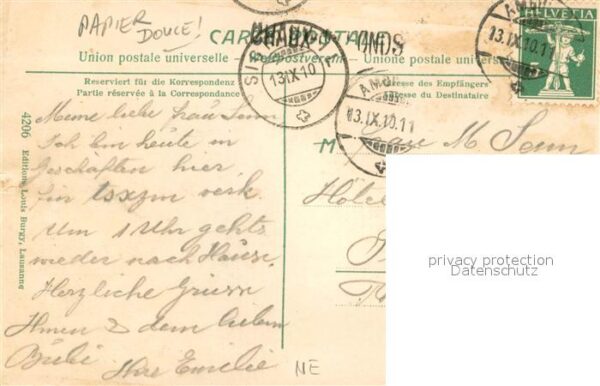 PAPIER
DOUCE!
CARTE POSTALE
CHAUX ONDS
Union postale universelle Weltpostverein Unione postale universale
Reserviert für die Korrespondenz
Partie réservée à la Correspondance
Adresse des Empfängers
Adresse du Destinataire
13.IX.10
AMBU
13.IX.10.11
AMBU
13.IX.10.11
HELVETIA
5
4206 Editions Louis Burgy, Lausanne
Meine liebe Frau Senn
Ich bin heute in
Geschäften hier,
Um 1 Uhr gehts
wieder nach Hause.
Herzliche Grüsse
Ihnen & dem lieben
Bubi Ihre Emilie
M Frau M Senn
Hôtel
NE
privacy protection
Datenschutz